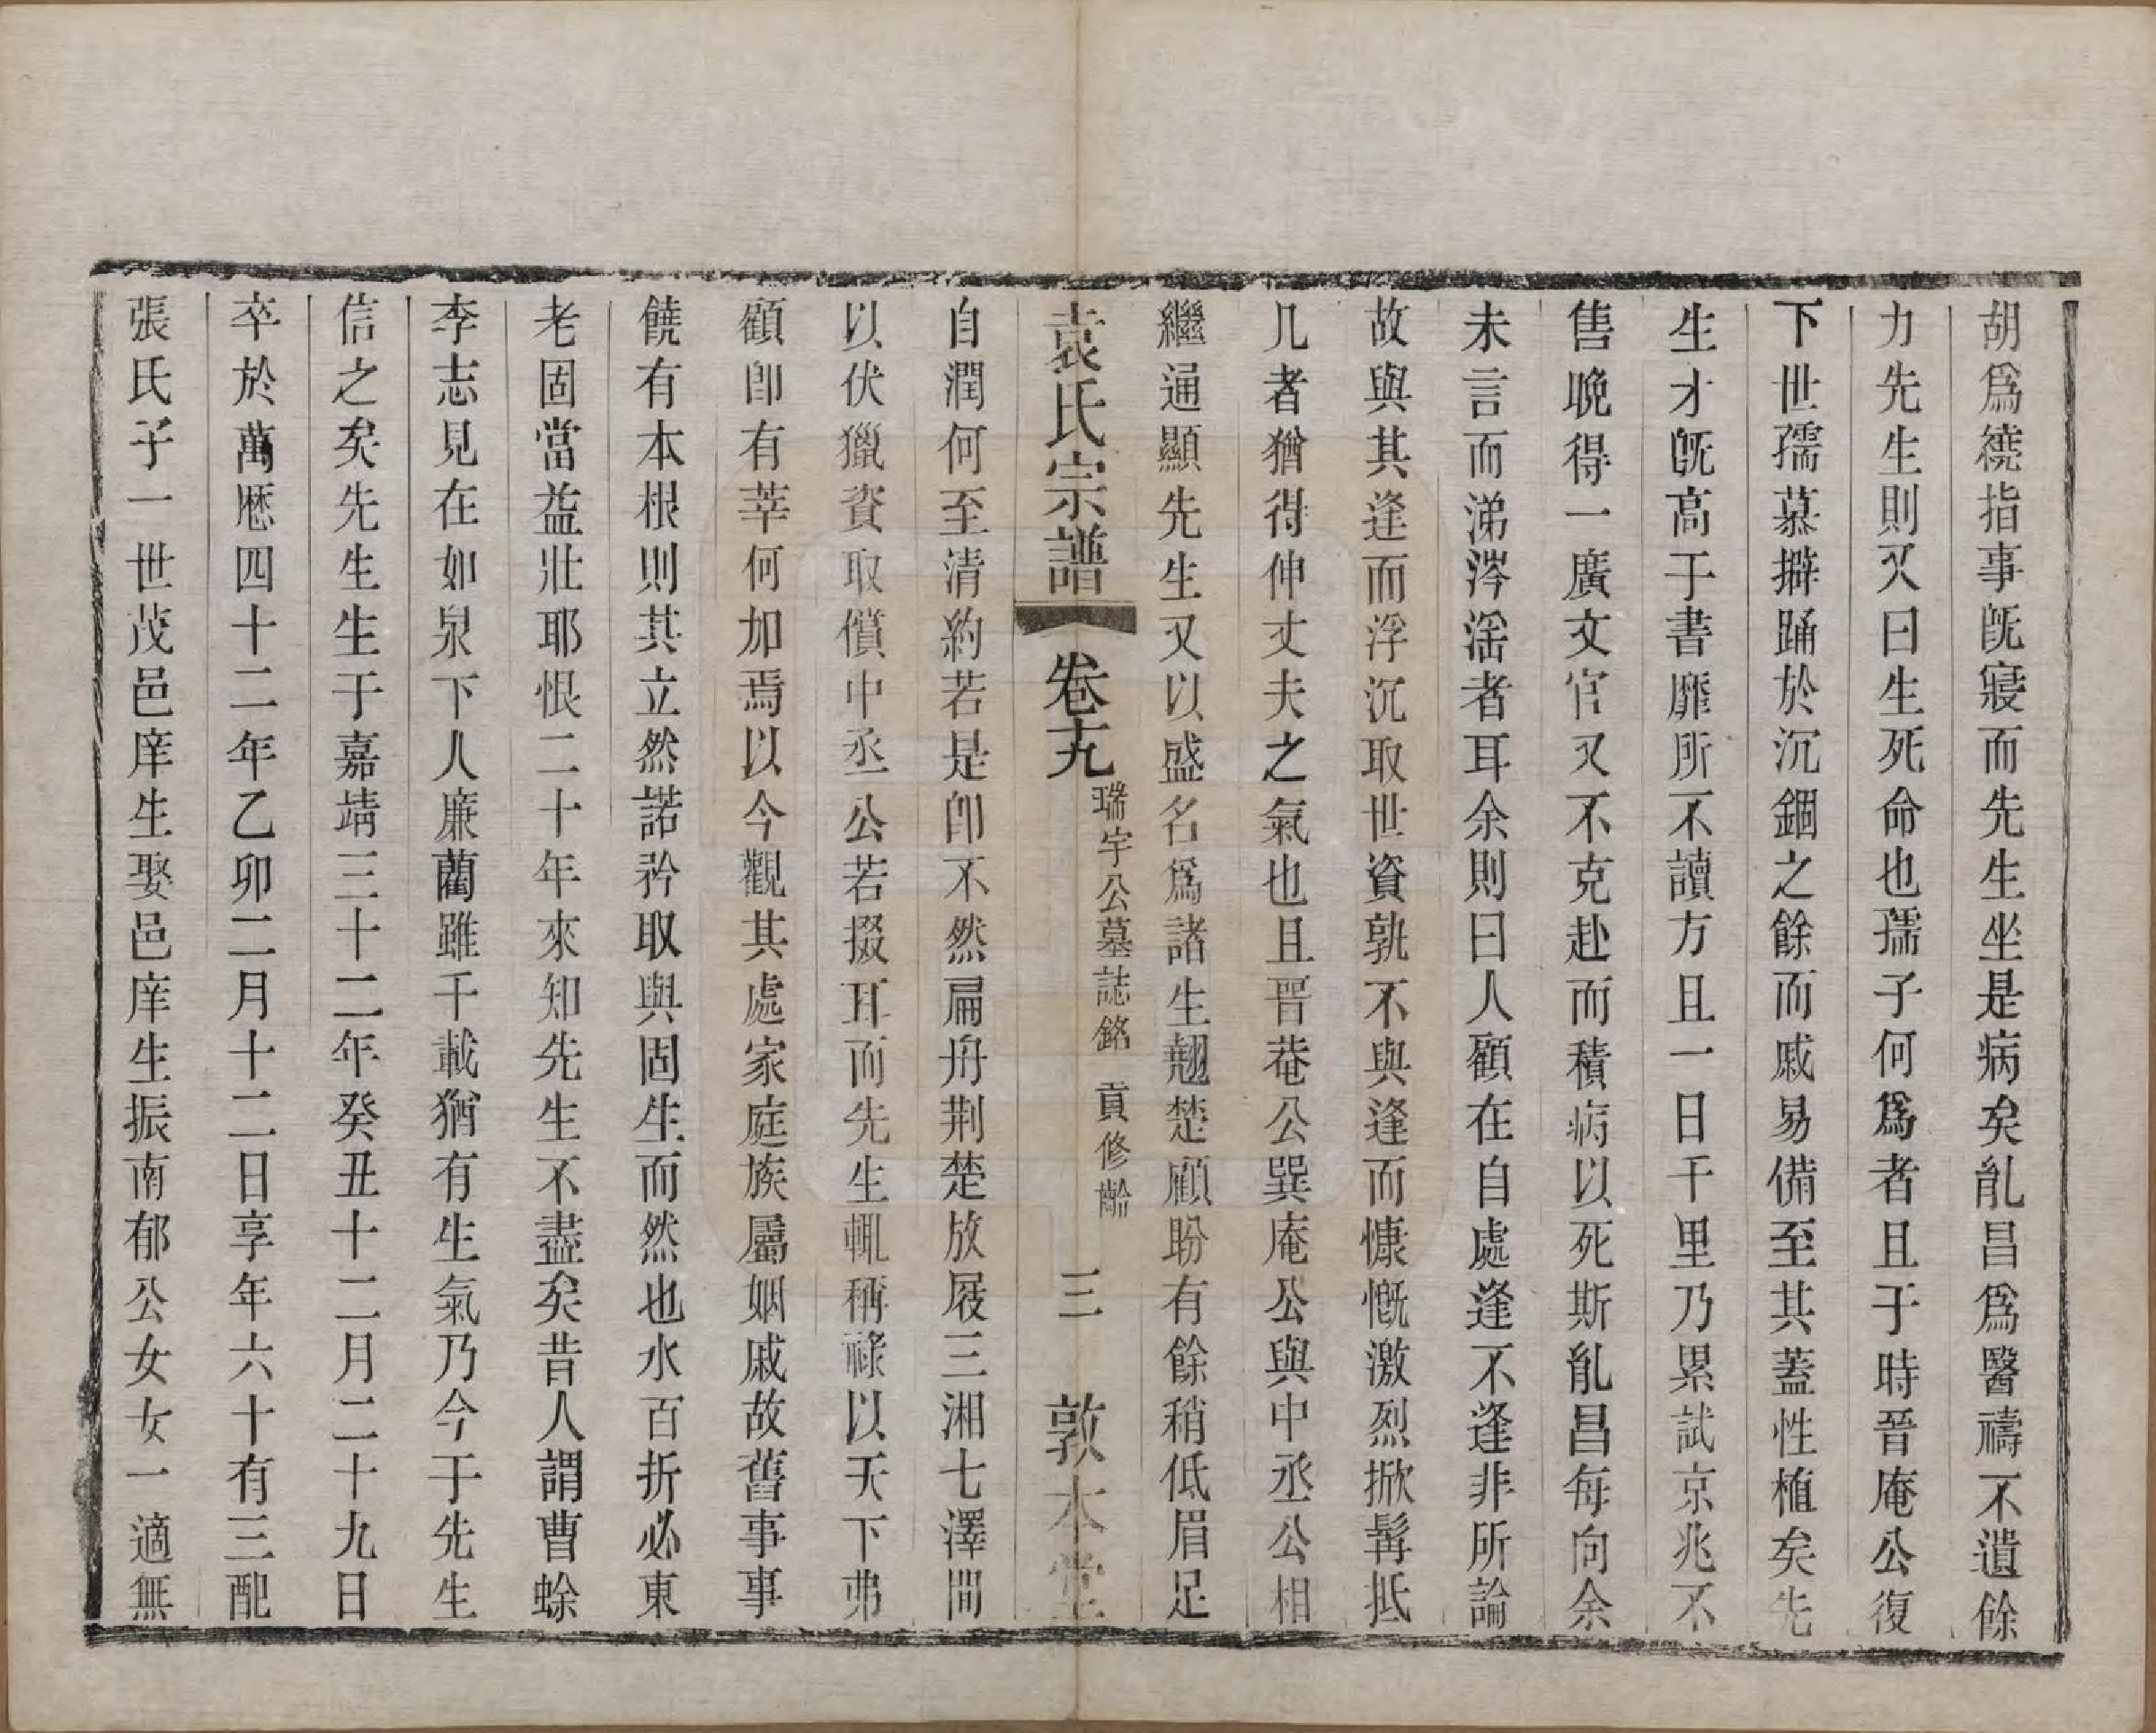 胡爲繞指事旣寢而先生坐是病矣胤昌爲醫禱不遺餘
力先生則又曰生死命也孺子何爲者且于時晉庵公復
下世孺慕擗踊於沉錮之餘而戚易備至其蓋性植矣先
生才旣高于書靡所不讀方且一日千里乃累試京兆不
售晚得一廣文官又不克赴而積病以死斯胤昌每向余
未言而涕涔滛者耳余則曰人顧在自處逢不逢非所論
故與其逢而浮沉取世資孰不與逢而慷慨激烈掀髯抵
几者猶得伸丈夫之氣也且晉菴公巽庵公與中丞公相
繼通顯先生又以盛名爲諸生翹楚顧盼有餘稍低眉足
袁氏宗譜 卷十九 瑞宇公墓誌銘 貢修齡 三 敦本堂
自潤何至清約若是卽不然扁舟荆楚放屐三湘七澤間
以伏獵資取償中丞公若掇耳而先生輒稱祿以天下弗
顧卽有莘何加焉以今觀其處家庭族屬姻戚故舊事事
饒有本根則其立然諾矜取與固生而然也水百折必東
老固當益壯耶恨二十年來知先生不盡矣昔人謂曹蜍
李志見在如泉下人廉藺雖千載猶有生氣乃今于先生
信之矣先生生于嘉靖三十二年癸丑十二月二十九日
卒於萬厯四十二年乙卯二月十二日享年六十有三配
張氏子一世茂邑庠生娶邑庠生振南郁公女女一適無